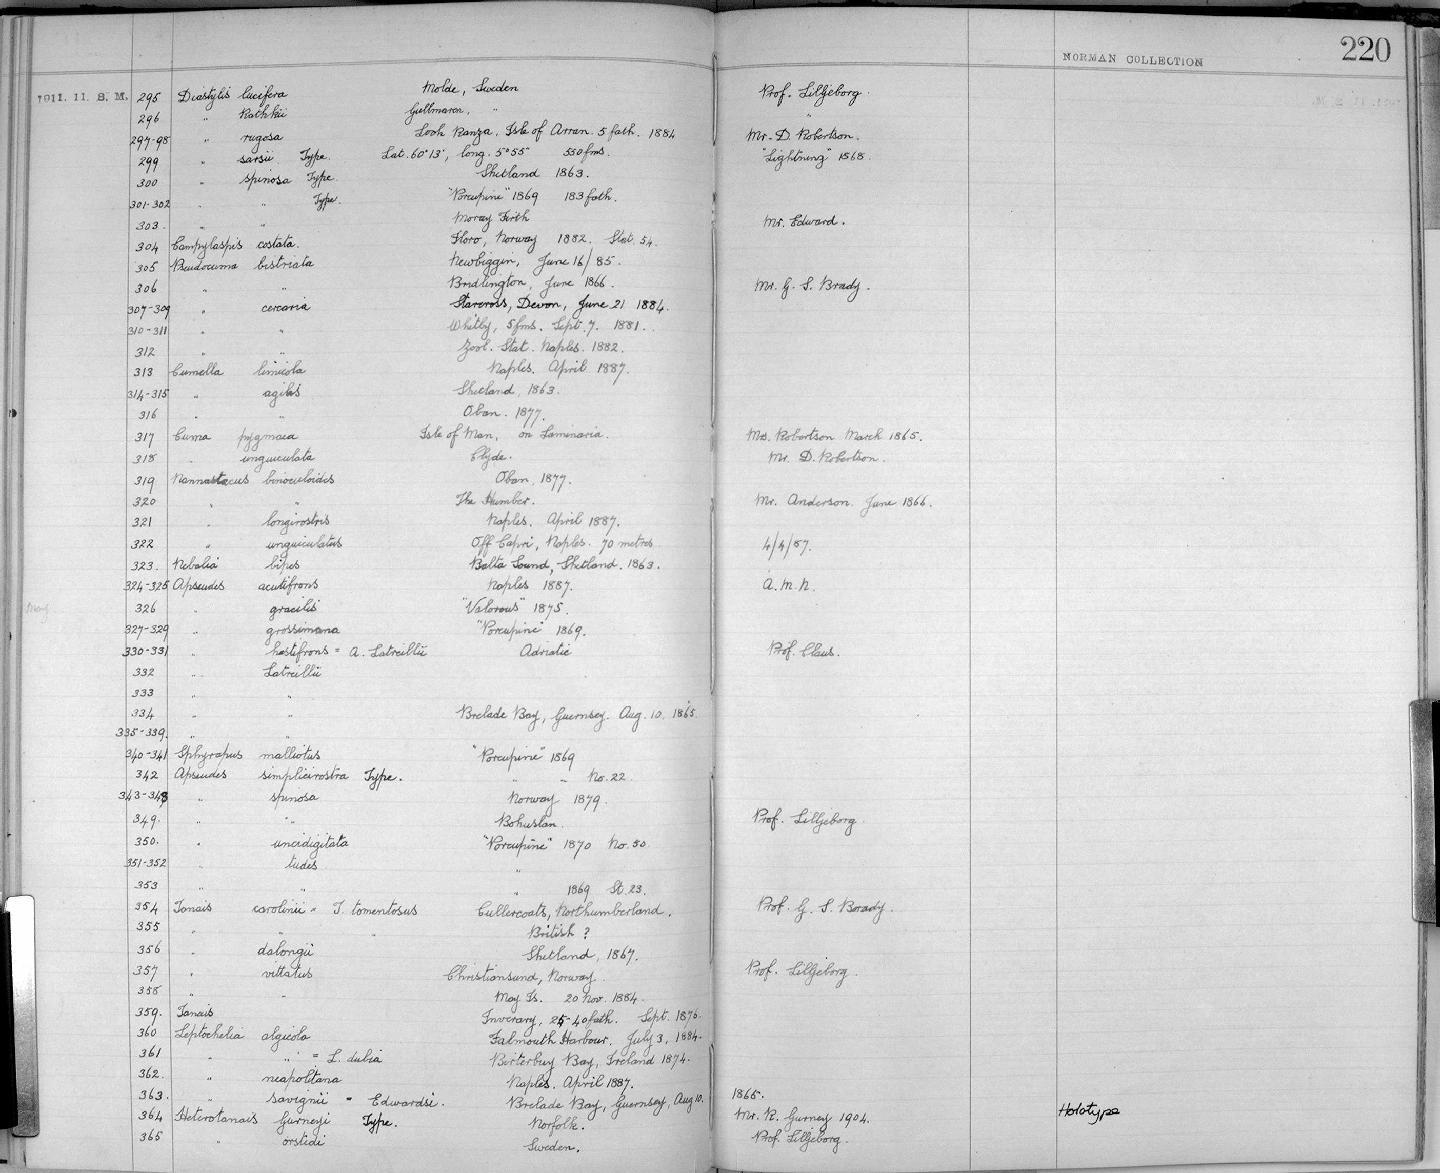 NORMAN COLLECTION 220
1911. 11. 8. M. 295 Diastylis lucifera Molde, Sweden Prof. Lilljeborg.
296 " Rathkii Gullmaren, " "
297-98 " rugosa Loch Ranza, Isle of Arran. 5 fath. 1884 Mr. D. Robertson.
299 " sarsii Type. Lat. 60°13', long. 5°55' 550 fms. "Lightning" 1868.
300 " spinosa Type. Shetland 1863.
301-302 " " Type. "Porcupine" 1869 183 fath.
303. " " Moray Firth Mr. Edward.
304 Campylaspis costata. Floro, Norway 1882. Stat. 54.
305 Pseudocuma bistriata Newbiggin, June 16/85.
306 " " Bridlington, June 1866. Mr. G. S. Brady.
307-309 " cercaria Starcross, Devon, June 21 1884.
310-311 " " Whitby, 5 fms. Sept. 7. 1881.
312 " " Zool. Stat. Naples. 1882.
313 Cumella limicola Naples. April 1887.
314-315 " agilis Shetland, 1863.
316 " " Oban. 1877.
317 Cuma pygmaea Isle of Man, on Laminaria. Mrs. Robertson March 1865.
318 " unguiculata Clyde. Mr. D. Robertson.
319 Nannastacus binoculoides Oban, 1877.
320 " " The Humber. Mr. Anderson. June 1866.
321 " longirostris Naples. April 1887.
322 " unguiculatus Off Capri, Naples. 70 metres 4/4/87.
323. Nebalia bipes Balta Sound, Shetland. 1863.
324-325 Apseudes acutifrons Naples 1887. A.M.N.
326 " gracilis "Valorous" 1875.
327-329 " grossimana "Porcupine" 1869.
330-331 " hastifrons = A. Latreillii Adriatic Prof. Claus.
332 " Latreillii
333 " "
334 " " Brelade Bay, Guernsey. Aug. 10. 1865.
335-339. " "
340-341 Sphyrapus malliolus "Porcupine" 1869
342 Apseudes simplicirostra Type. " " No. 22.
343-348 " spinosa Norway 1879.
349. " " Bohuslan. Prof. Lilljeborg
350. " uncidigitata "Porcupine" 1870 No. 50.
351-352 " tudes "
353 " " " 1869 St. 23.
354 Tanais carolinii = T. tomentosus Cullercoats, Northumberland. Prof. G. S. Brady.
355 " " " British ?
356 " dulongii Shetland, 1867.
357 " vittatus Christiansund, Norway. Prof. Lilljeborg.
358 " " May Is. 20 Nov. 1884.
359. Tanais Inverary, 25-40 fath. Sept. 1876.
360 Leptochelia algicola Falmouth Harbour, July 3, 1884.
361 " " = L. dubia Birterbuy Bay, Ireland 1874.
362. " neapolitana Naples. April 1887.
363. " savignii = Edwardsi. Brelade Bay, Guernsey, Aug 10. 1865.
364 Heterotanais Gurneyi Type. Norfolk. Mr. R. Gurney 1904. Holotype
365 " orstidi Sweden. Prof. Lilljeborg.